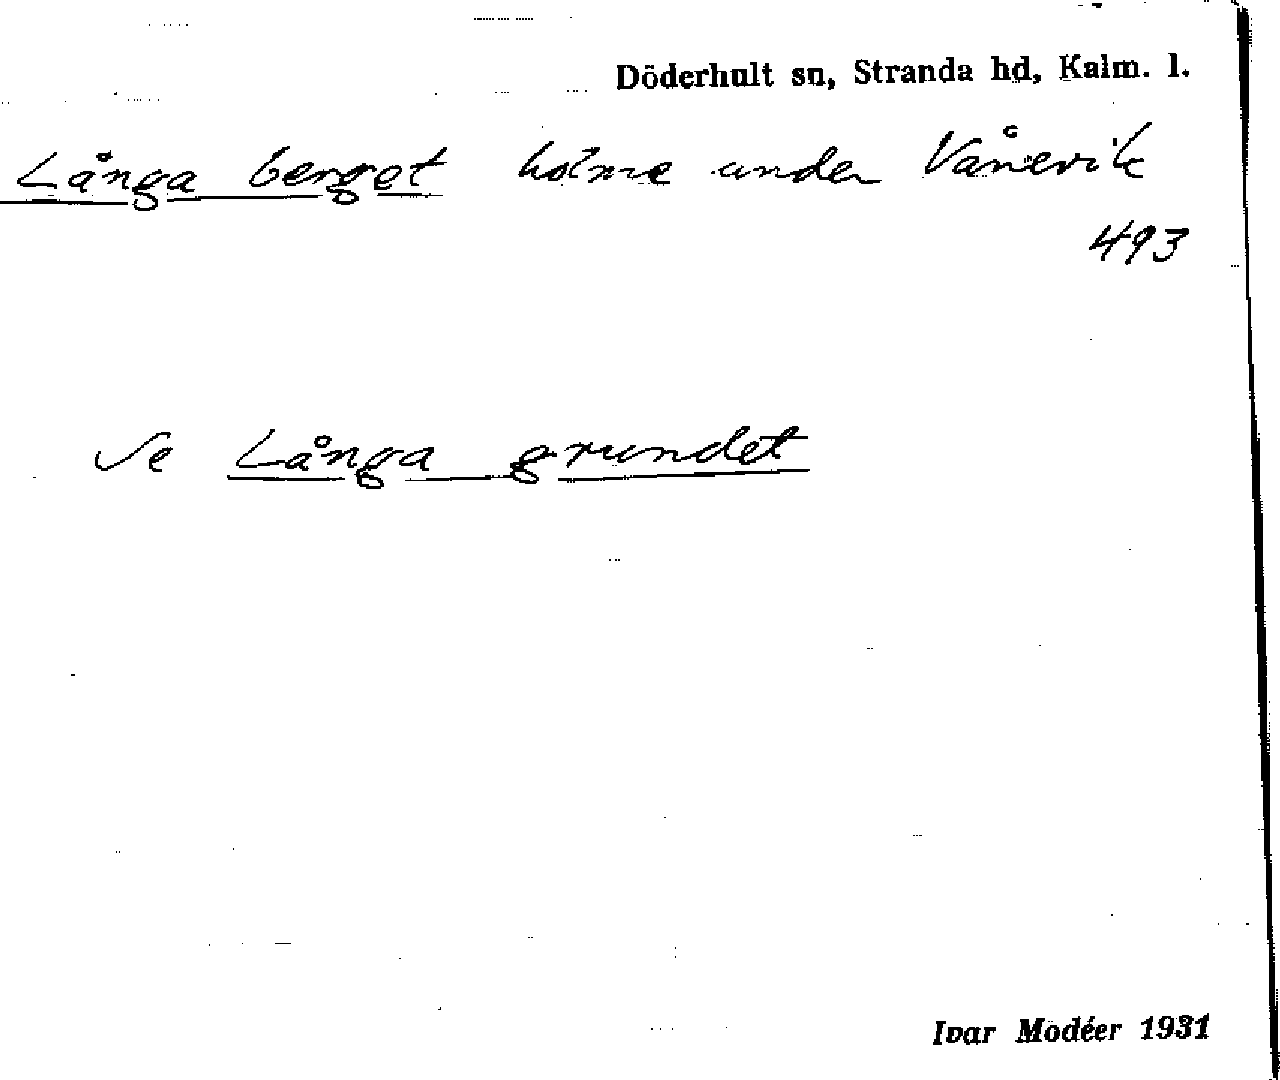 Döderhult sn, Stranda hd, Kalm. l.
Långa berget holme under Vånevik
493
Se Långa grundet
Ivar Modéer 1931